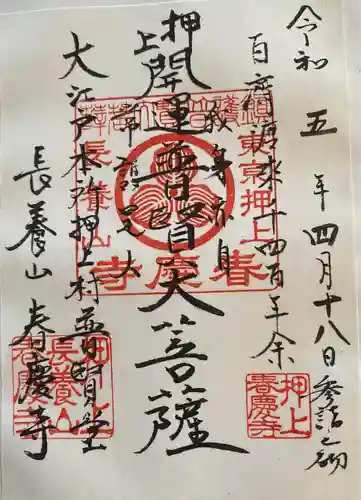 令和五年四月十八日参詣之砌
百済渡来千四百年余
押上
開運普賢大菩薩
大江戸本所押上村普賢堂
長養山春慶寺
東京押上
長養山
春慶寺
押上
春慶寺
押上
長養山
春慶寺